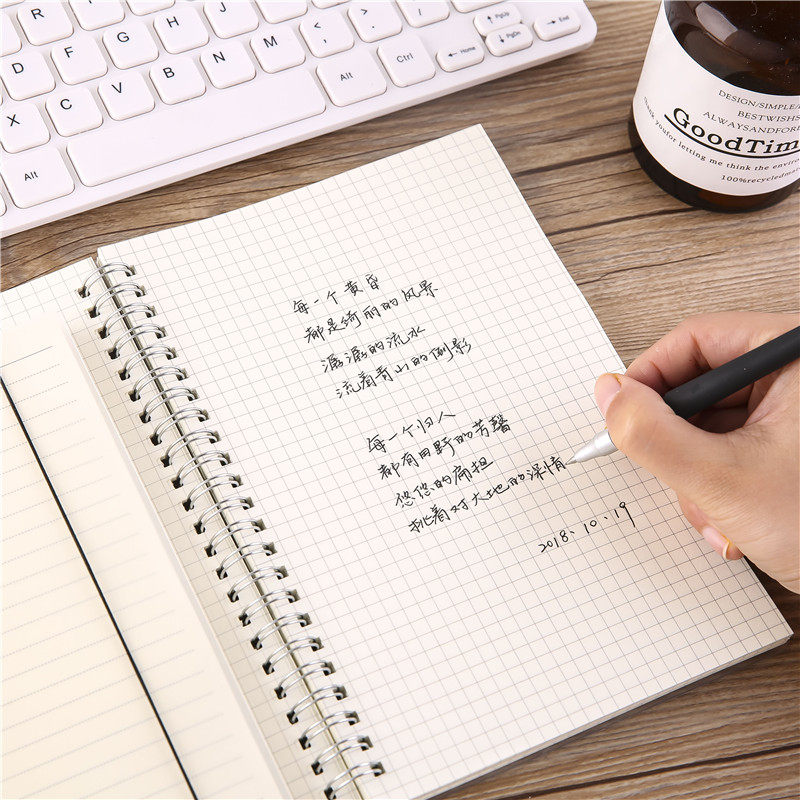 R Y U I O P
D F G H J K L : ; " '
X C V B N M < , > . ? /
Alt Alt Ctrl ←Home ↑PgUp ↓PgDn →End
DESIGN/SIMPLE/
BESTWISHS
ALWAYSANDFOR
GoodTim
thank youfor letting me think the enviro
100%recycledmat
每一个黄昏
都是绮丽的风景
潺潺的流水
流着青山的倒影
每一个归人
都有田野的芳馨
悠悠的扁担
挑着对大地的深情
2018.10.19